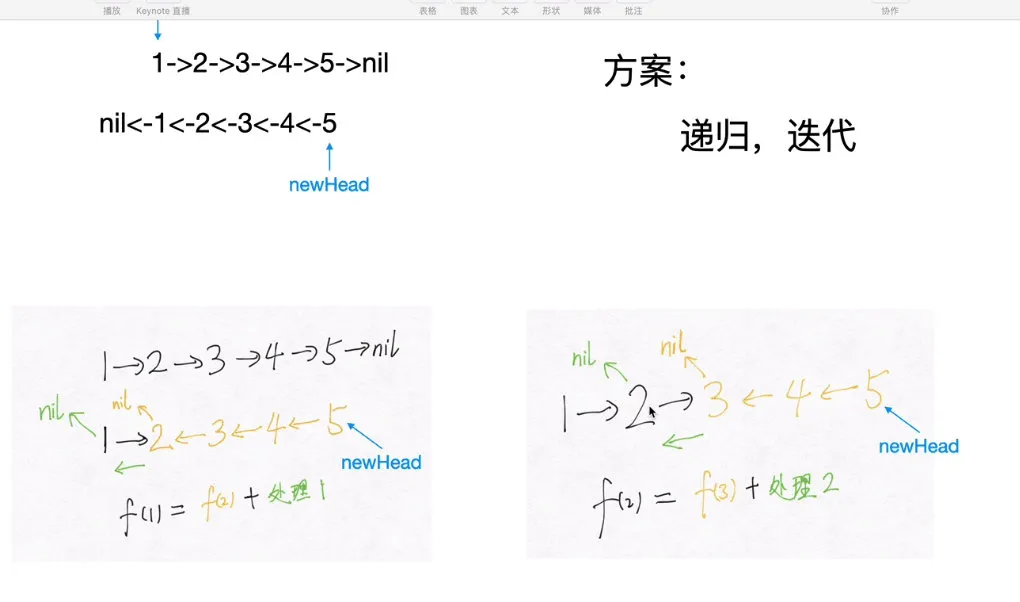 播放 Keynote 直播 表格 图表 文本 形状 媒体 批注 协作
1->2->3->4->5->nil
nil<-1<-2<-3<-4<-5
newHead
方案：
递归，迭代
1→2→3→4→5→nil
nil nil
1→2←3←4←5
newHead
f(1) = f(2) + 处理1
nil nil
1→2→3←4←5
newHead
f(2) = f(3) + 处理2